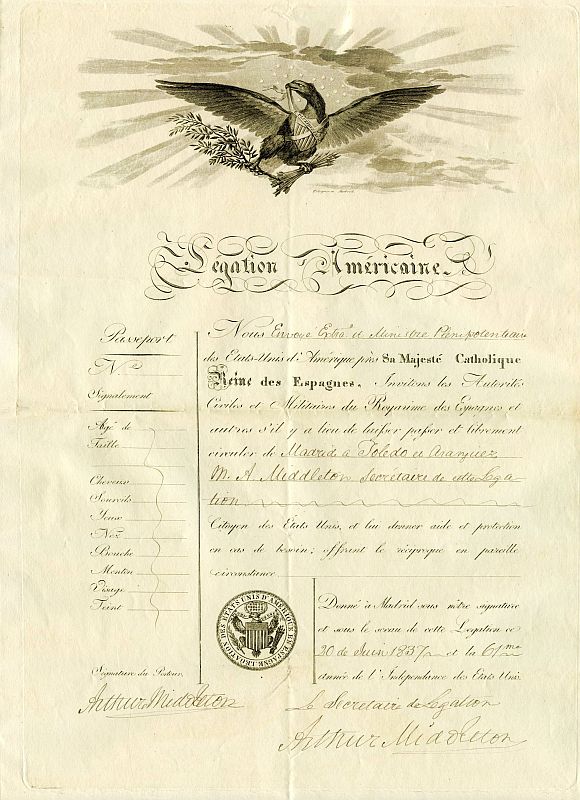 Légation Américaine
Passeport
Nº
Signalement
Agé de
Taille
Cheveux
Sourcils
Yeux
Nez
Bouche
Menton
Visage
Teint
Signature du Porteur
Arthur Middleton
Nous Envoyé Extra. et Ministre Plénipotentiaire
des Etats-Unis d'Amérique près Sa Majesté Catholique
Reine des Espagnes, Invitons les Autorités
Civiles et Militaires du Royaume des Espagnes et
autres s'il y a lieu de laisser passer et librement
circuler de Madrid à Toledo et Aranjuez
M. A. Middleton Secrétaire de cette Léga-
tion
Citoyen des Etats Unis, et lui donner aide et protection
en cas de besoin; offrant le réciproque en pareille
circonstance.
LEGATION DES ETATS UNIS D'AMERIQUE EN ESPAGNE
Donné à Madrid sous nôtre signature
et sous le sceau de cette Legation ce
20 de Juin 1837 et la 61me
année de l'Indépendance des Etats Unis.
Le Secrétaire de Legation
Arthur Middleton